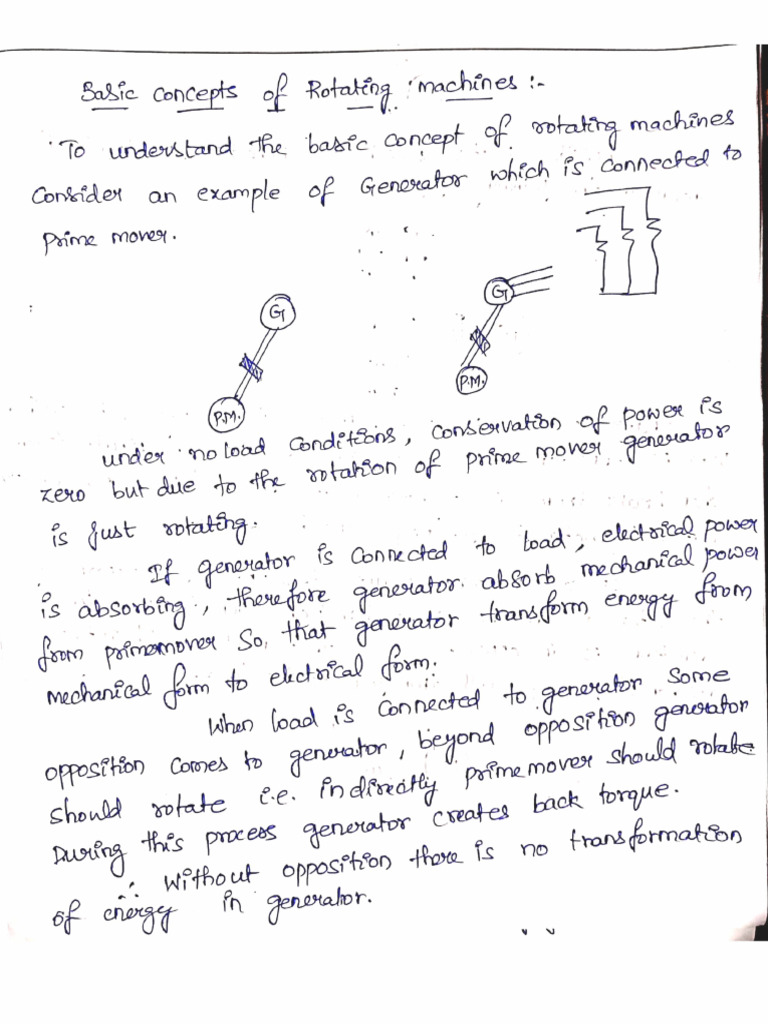 Basic Concepts of Rotating machines :-
To understand the basic concept of rotating machines
Consider an example of Generator which is connected to
Prime mover.
G
G
P.M.
P.M.
under no load conditions, conservation of power is
zero but due to the rotation of prime mover generator
is just rotating.
If generator is connected to load, electrical power
is absorbing, therefore generator absorb mechanical power
from primemover so, that generator transform energy from
mechanical form to electrical form.
When load is connected to generator some
opposition comes to generator, beyond opposition generator
should rotate i.e. indirectly prime mover should rotate
During this process generator creates back torque.
∴ without opposition there is no transformation
of energy in generator.